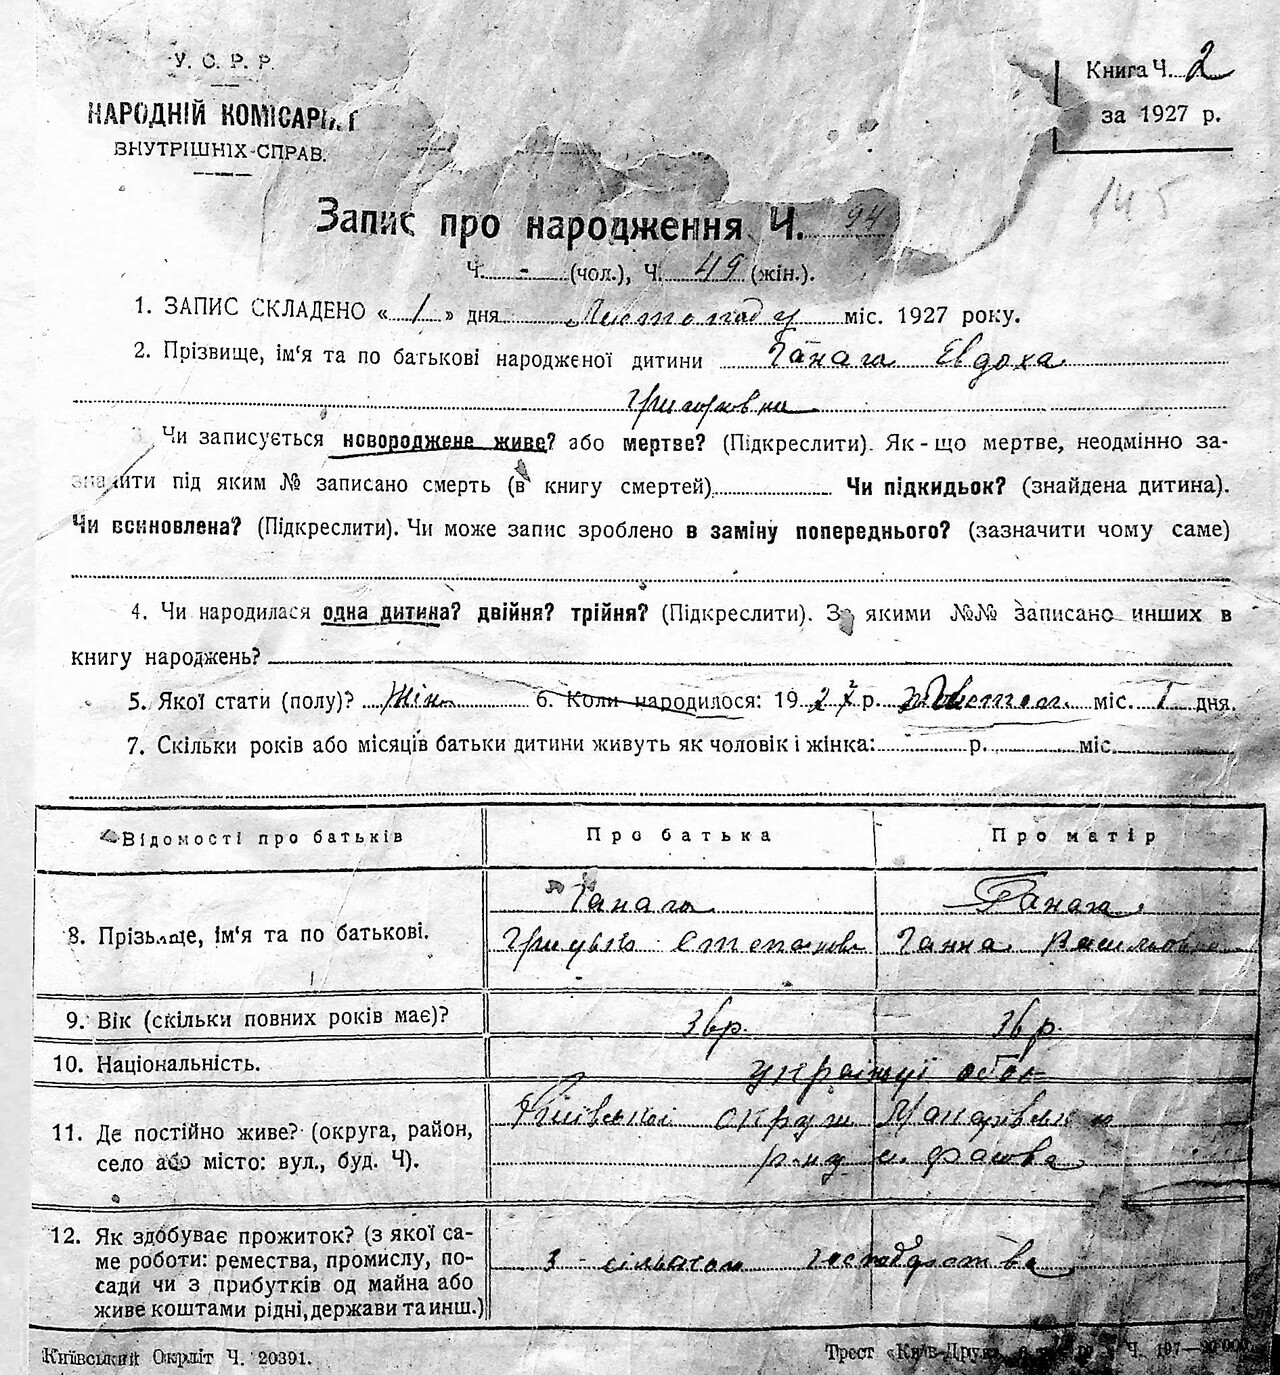 У. С. Р. Р.
НАРОДНІЙ КОМІСАРІЯТ
ВНУТРІШНІХ СПРАВ.
Книга Ч. 2
за 1927 р.
145
Запис про народження Ч. 94
Ч. - (чол.), Ч. 49 (жін.).
1. ЗАПИС СКЛАДЕНО « 1 » дня Листопаду міс. 1927 року.
2. Прізвище, ім'я та по батькові народженої дитини Ганага Евдоха
Григоровна
3. Чи записується новороджене живе? або мертве? (Підкреслити). Як-що мертве, неодмінно за-
значити під яким № записано смерть (в книгу смертей) Чи підкидьок? (знайдена дитина).
Чи всиновлена? (Підкреслити). Чи може запис зроблено в заміну попереднього? (зазначити чому саме)
4. Чи народилася одна дитина? двійня? трійня? (Підкреслити). За якими №№ записано инших в
книгу народжень?
5. Якої стати (полу)? жін. 6. Коли народилося: 1927 р. Листоп. міс. 1 дня.
7. Скільки років або місяців батьки дитини живуть як чоловік і жінка: р. міс.
Відомості про батьків Про батька Про матір
8. Прізвище, ім'я та по батькові. Ганага Ганага
Грицько Степанов Ганна Васильовна
9. Вік (скільки повних років має)? 36 р. 36 р.
10. Національність. українці обоє
11. Де постійно живе? (округа, район,
село або місто: вул., буд. Ч). Київської округи Макарівського
р-ну с. Фасова
12. Як здобуває прожиток? (з якої са-
ме роботи: ремества, промислу, по-
сади чи з прибутків од майна або
живе коштами рідні, держави та инш.) З сільського господарства
Київський Окрліт Ч. 20391.
Трест «Київ-Друк»